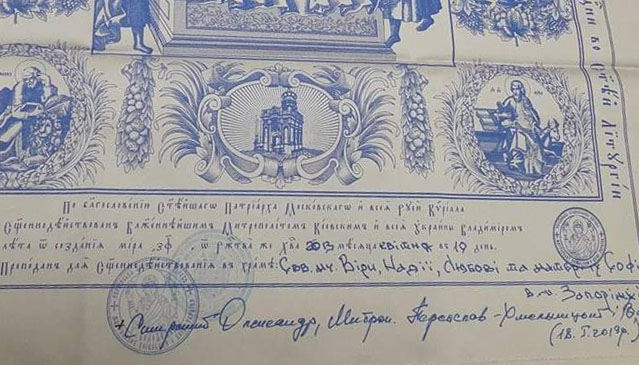 По благословенїи Стѣйшагѡ Патрїарха Московскагѡ и всеѧ Руси Кѷрїлла
Сщеннодѣйствован Блаженнѣйшим Митрополїтом Кїевским и всеѧ Украины Владимїром
лѣта ѿ созданїѧ мїра ѿ ржтва же Хва 2013 мѣсѧца квітня въ 19 день.
Преподан длѧ Сщеннодѣйствованїѧ в храмѣ: Свв. мч. Віри, Надії, Любові та матері Софії
в м. Запоріж
+ Олександр, Митроп. Переяслав-Хмельницький
(18.I.2019р.)
во Ст҃ѣй Лїтургїи